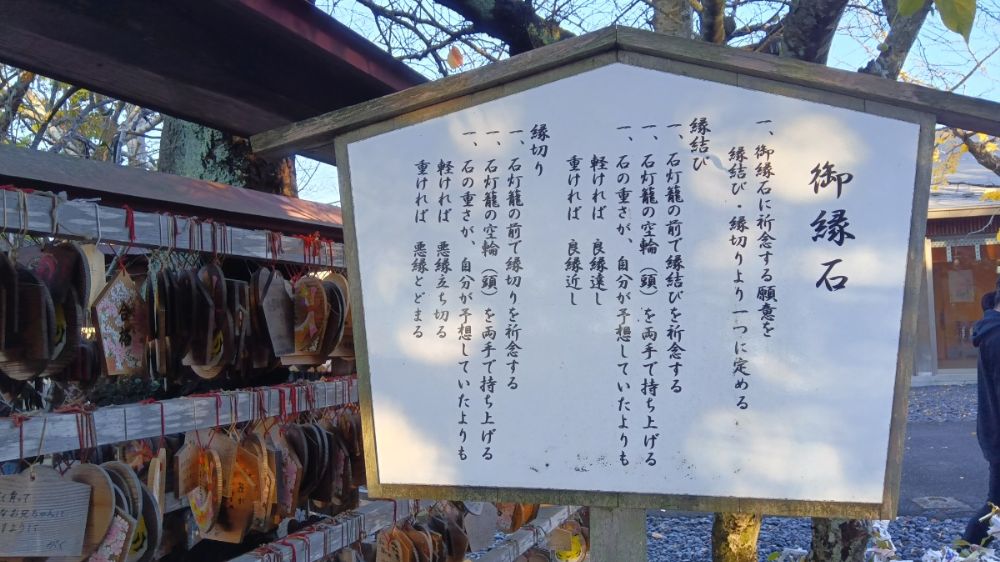 御縁石
一、御縁石に祈念する願意を
縁結び・縁切りより一つに定める
縁結び
一、石灯籠の前で縁結びを祈念する
一、石灯籠の空輪(頭)を両手で持ち上げる
一、石の重さが、自分が予想していたよりも
軽ければ 良縁遠し
重ければ 良縁近し
縁切り
一、石灯籠の前で縁切りを祈念する
一、石灯籠の空輪(頭)を両手で持ち上げる
一、石の重さが、自分が予想していたよりも
軽ければ 悪縁立ち切る
重ければ 悪縁とどまる